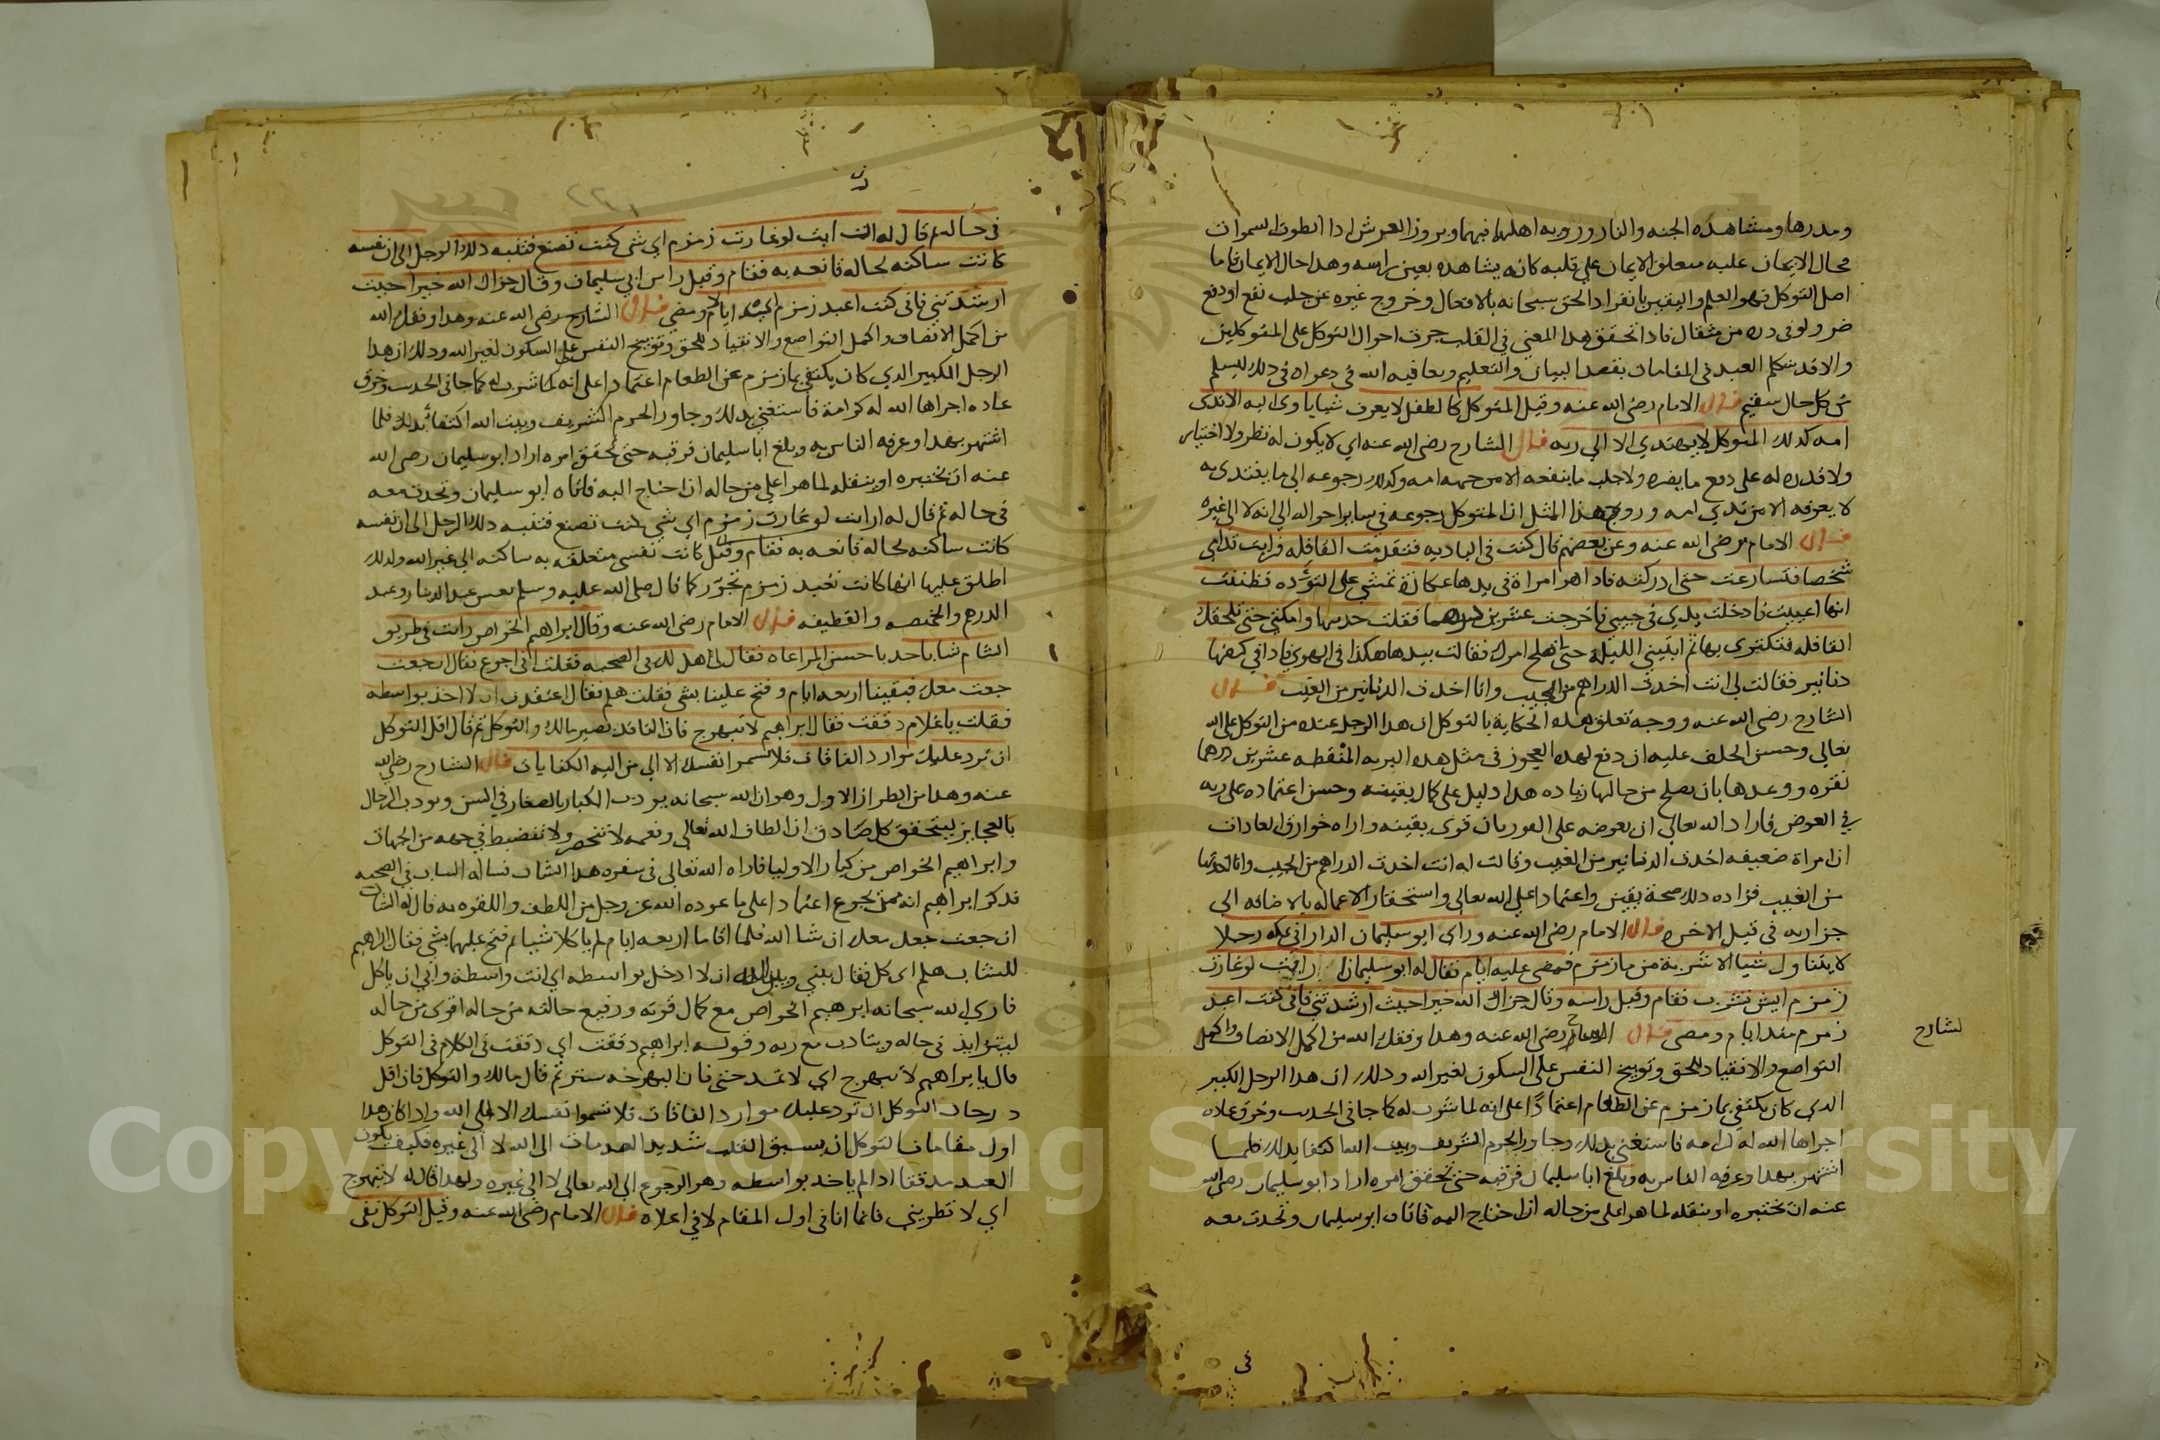 ومدرها ومشاهده الجنه والنار وزويه اهلها فيهما وبروز العرش اذا انطوت السموات
محال الايمان عليه متعلق الايمان على قلبه كانه يشاهده بعين راسه وهذا حال الايمان فاما
اصل التوكل فهو العلم واليقين بانفراد الحق سبحانه بالافعال وخروج غيره عن جلب نفع او دفع
ضر ولو فى دره من مثقال فاذا تحقق هذا المعني في القلب جرت احوال التوكل على المتوكلين
والا قد يتكلم العبد فى المقامات بقصد البيان والتعليم ويعافيه الله في دعواه فى ذلك ليسلم
من كل حال سقيم قال الامام رضى الله عنه وقيل المتوكل كالطفل لا يعرف شيا ياوى اليه الا ثدى
امه كدلك المتوكل لا يهتدي الا الي ربه قال الشارح رضى الله عنه اي لا يكون له نظر ولا اختيار
ولا قدره له على دفع ما يضره ولا جلب ما ينفعه الا من جهه امه وكدلك رجوعه الى ما يغتدى به
لا يعرفه الا من ثدي امه ووجه هذا المثل ان المتوكل رجوعه في ساير احواله الى الله لا الى غيره
قال الامام رضى الله عنه وعن بعضهم قال كنت فى الباديه فتقدمت القافله فرايت قدامى
شخصا فتسارعت حتى ادركته فاذا هو امراة فى يدها عكازة تمشي على التؤده فظننت
انها اعييت فادخلت يدى فى جيبي فاخرجت عشرين درهما فقلت خديها وامكثي حتى تلحقك
القافله فتكترى بها ثم ايتيني الليلة حتى اصلح امرك فقالت بيدها هكذا فى الهوى فاذا في كفها
دنانير فقالت لى انت اخذت الدراهم من الجيب وانا اخذت الدنانير من الغيب قال
الشارح رضى الله عنه ووجه تعلق هذه الحكاية بالتوكل ان هذا الرجل عنده من التوكل على الله
تعالي وحسن الخلف عليه ان دفع لهذه العجوز فى مثل هذه البريه المنقطعه عشرين درهما
نقره ووعدها بان يصلح من حالها زياده هذا دليل على كمال يقينه وحسن اعتماده على ربه
في العوض فاراد الله تعالى ان يعوضه على الفور بان قوى يقينه واراه خوارق العادات
ان امراة ضعيفه اخذت الدنانير من الغيب وقالت له انت اخذت الدراهم من الجيب وانا اخذتها
من الغيب فزاده ذلك صحة يقين واعتمادا على الله تعالى واستحقار الاعماله بالاضافه الى
جزا ربه في قيل الاخره قال الامام رضى الله عنه وراى ابو سليمان الدارانى بمكه رجلا
لا يتناول شيا الا شربة من ماء زمزم فمضى عليه ايام فقال له ابو سليمان ارايت لو غارت
زمزم ايش تشرب فقام وقبل راسه وقال جزاك الله خيرا حيث ارشدتني فاني كنت اعبد
زمزم منذ ايام ومضى قال الشارح رضى الله عنه وهذا وفقك الله من اكمل الانصاف واكمل
لشارح
التواضع والانقياد للحق وتوبيخ النفس على السكون لغير الله ودلك ان هذا الرجل الكبير
الدي كان يكتفي بماء زمزم عن الطعام اعتمادا على انه لما شرب له كما جا فى الحديث وخرق عاده
اجراها الله له كرامه فاستغنى بدلك وجاور الحرم الشريف وبيت الله اكتفا بدلك فلما
اشتهر بهذا وعرفه الناس به وبلغ ابا سليمان فرقبه حتى تحقق امره اراد ابو سليمان رضى الله
عنه ان يختبره او ينقله لما هو اعلى من حاله ان احتاج اليه فاتاه ابو سليمان وتحدث معه
فى
فى حاله ثم قال له انت ارايت لو غارت زمزم اي شى كنت تصنع فتنبه دلك الرجل الى ان نفسه
كانت ساكنه لحاله فانعه به فقام وقبل راس ابي سليمان وقال جزاك الله خيرا حيث
ارشدتني فاني كنت اعبد زمزم منذ ايام ومضى قال الشارح رضى الله عنه وهذا وفقك الله
من اكمل الانصاف واكمل التواضع والانقياد للحق وتوبيخ النفس على السكون لغير الله ودلك ان هذا
الرجل الكبير الدي كان يكتفي بماء زمزم عن الطعام اعتمادا على انه لما شرب له كما جا فى الحديث وخرق
عاده اجراها الله له كرامة فاستغنى بدلك وجاور الحرم الشريف وبيت الله اكتفا بدلك فلما
اشتهر بهذا وعرفه الناس به وبلغ ابا سليمان فرقبه حتى تحقق امره اراد ابو سليمان رضى الله
عنه ان يختبره او ينقله لما هو اعلى من حاله ان احتاج اليه فاتاه ابو سليمان وتحدث معه
فى حاله ثم قال له ارايت لو غارت زمزم اي شي كنت تصنع فتنبه دلك الرجل الى ان نفسه
كانت ساكنه لحاله فانعه به فقام وقبل كانت نفسى متعلقه به ساكنه الى غير الله ولدلك
اطلق عليها انها كانت تعبد زمزم تجوز كما قال صلى الله عليه وسلم تعس عبد الدينار وعبد
الدرهم والخميصه والقطيفه قال الامام رضى الله عنه وقال ابراهيم الخواص رايت فى طريق
الشام شابا حدثا حسن المراعاه فقال لى هل لك فى الصحبه فقلت انى اجوع فقال ان جعت
جعت معك فبقينا اربعه ايام وفتح علينا بشى فقلت هلم فقال اعتقدت ان لا اخذ بواسطه
فقلت يا غلام دققت فقال يا ابراهيم لا تبهرج فان الناقد بصير مالك والتوكل ثم قال اقل التوكل
ان ترد عليك موارد الفاقات فلا تسموا نفسك الا الى من اليه الكفايات قال الشارح رضى الله
عنه وهذا من الطراز الاول وهو ان الله سبحانه يودب الكبار بالصغار في السن ويودب الرجال
بالعجايز ليتحقق كل صادق ان الطاف الله تعالى ونعمه لا تنحصر ولا تنضبط في جهه من الجهات
وابراهيم الخواص من كبار الاوليا فاراه الله تعالى فى سفره هذا الشاب فساله الشاب فى الصحبه
فذكر ابراهيم انه ممن يجوع اعتمادا على ما عوده الله عز وجل من اللطف والقوه به قال له الشاب
ان جعت جعت معك ان شا الله فلما اقاما اربعه ايام لم ياكلا شيا ثم فتح عليهما بشي فقال ابراهيم
للشاب هلم اى كل فقال بيني وبين الله ان لا ادخل بواسطه اي انت واسطه وابي ان ياكل
فاري الله سبحانه ابرهيم الخواص مع كمال قوته ورفيع حالته من حاله اقوى من حاله
ليتزايد في حاله ويتادب مع ربه وقوله ابراهيم دققت اي دققت فى الكلام فى التوكل
قال يا ابراهيم لا تبهرج اي لا تمد حتى فان البهرجه ستر ثم قال مالك والتوكل فان اقل
درجات التوكل ان ترد عليك موارد الفاقات فلا تسموا نفسك الا الى الله واذا كان هذا
اول مقامات التوكل ان يسبق القلب شديد الصدمات الى الله لا الى غيره فكيف يكون
العبد مدققا اذا لم ياخذ بواسطه وهو الرجوع الى الله تعالى لا الى غيره ولهذا قال له لا تبهرج
اي لا تطريني فانما انا فى اول المقام لا فى اعلاه قال الامام رضى الله عنه وقيل التوكل نفى
Copyright © King Saud University